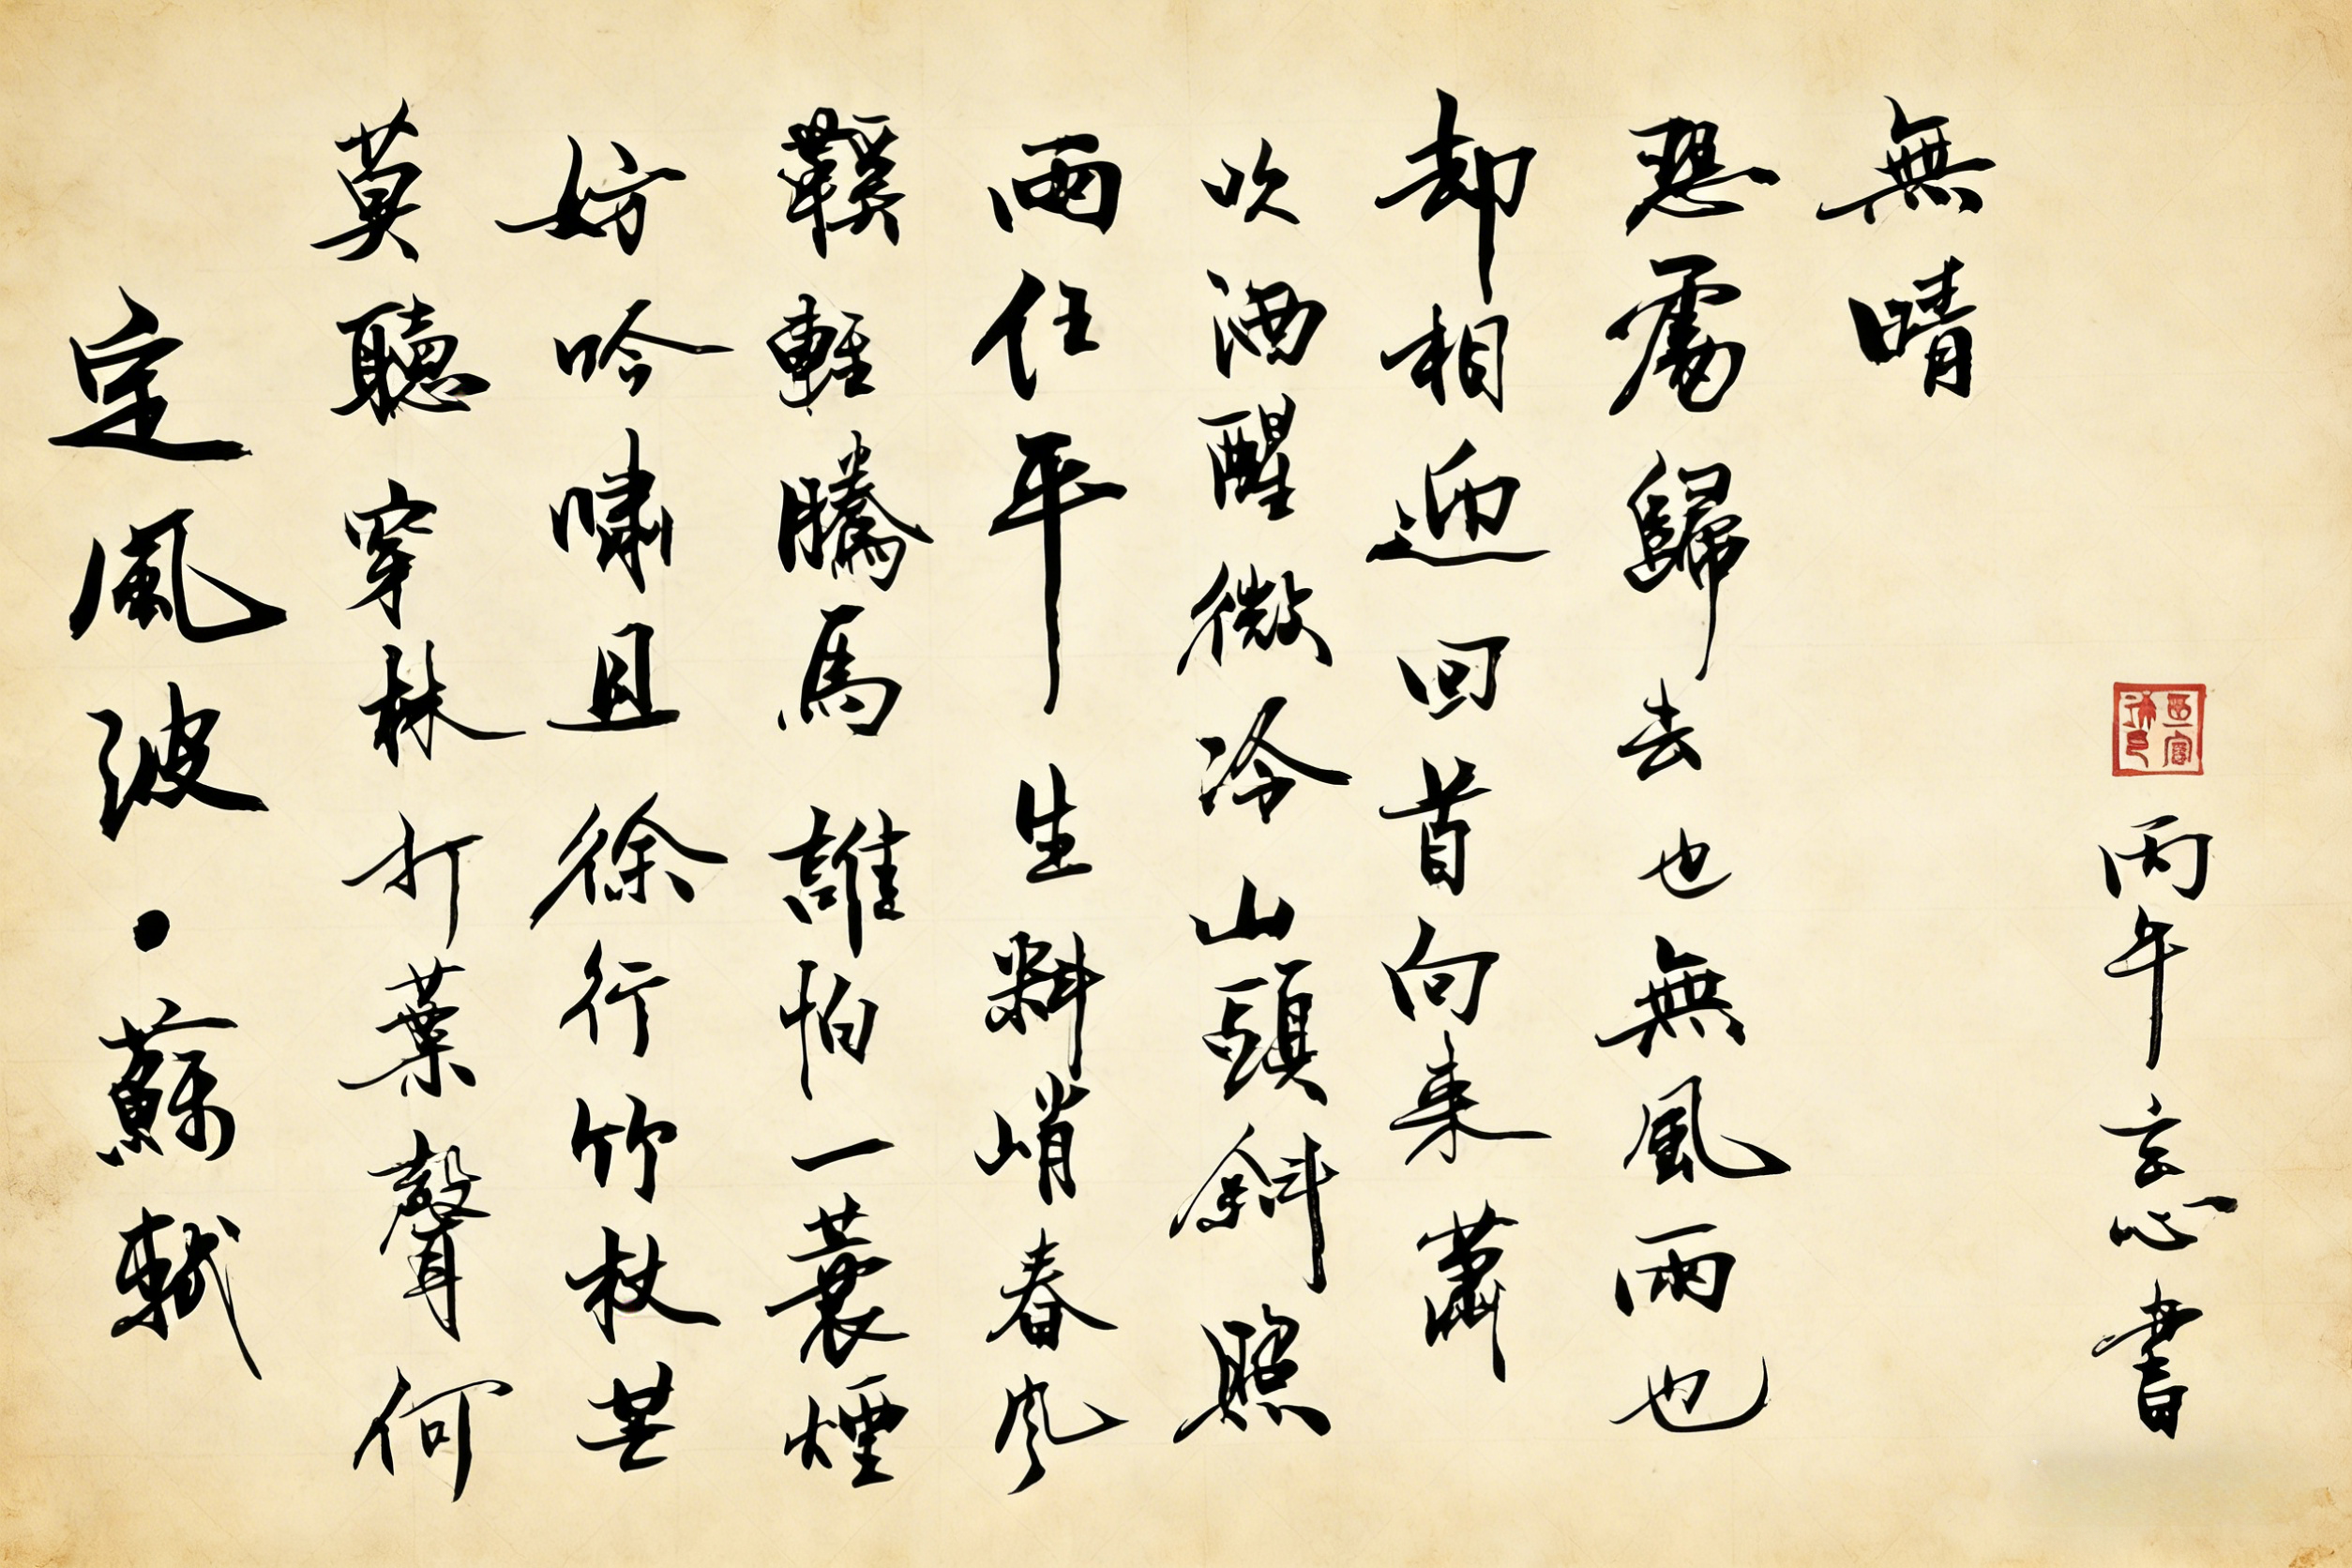 定風波·蘇軾
莫聽穿林打葉聲何
妨吟嘯且徐行竹杖芒
鞵輕騰馬誰怕一蓑煙
雨任平生料峭春風
吹酒醒微冷山頭斜照
却相迎回首向来蕭
瑟處歸去也無風雨也
無晴
丙午書